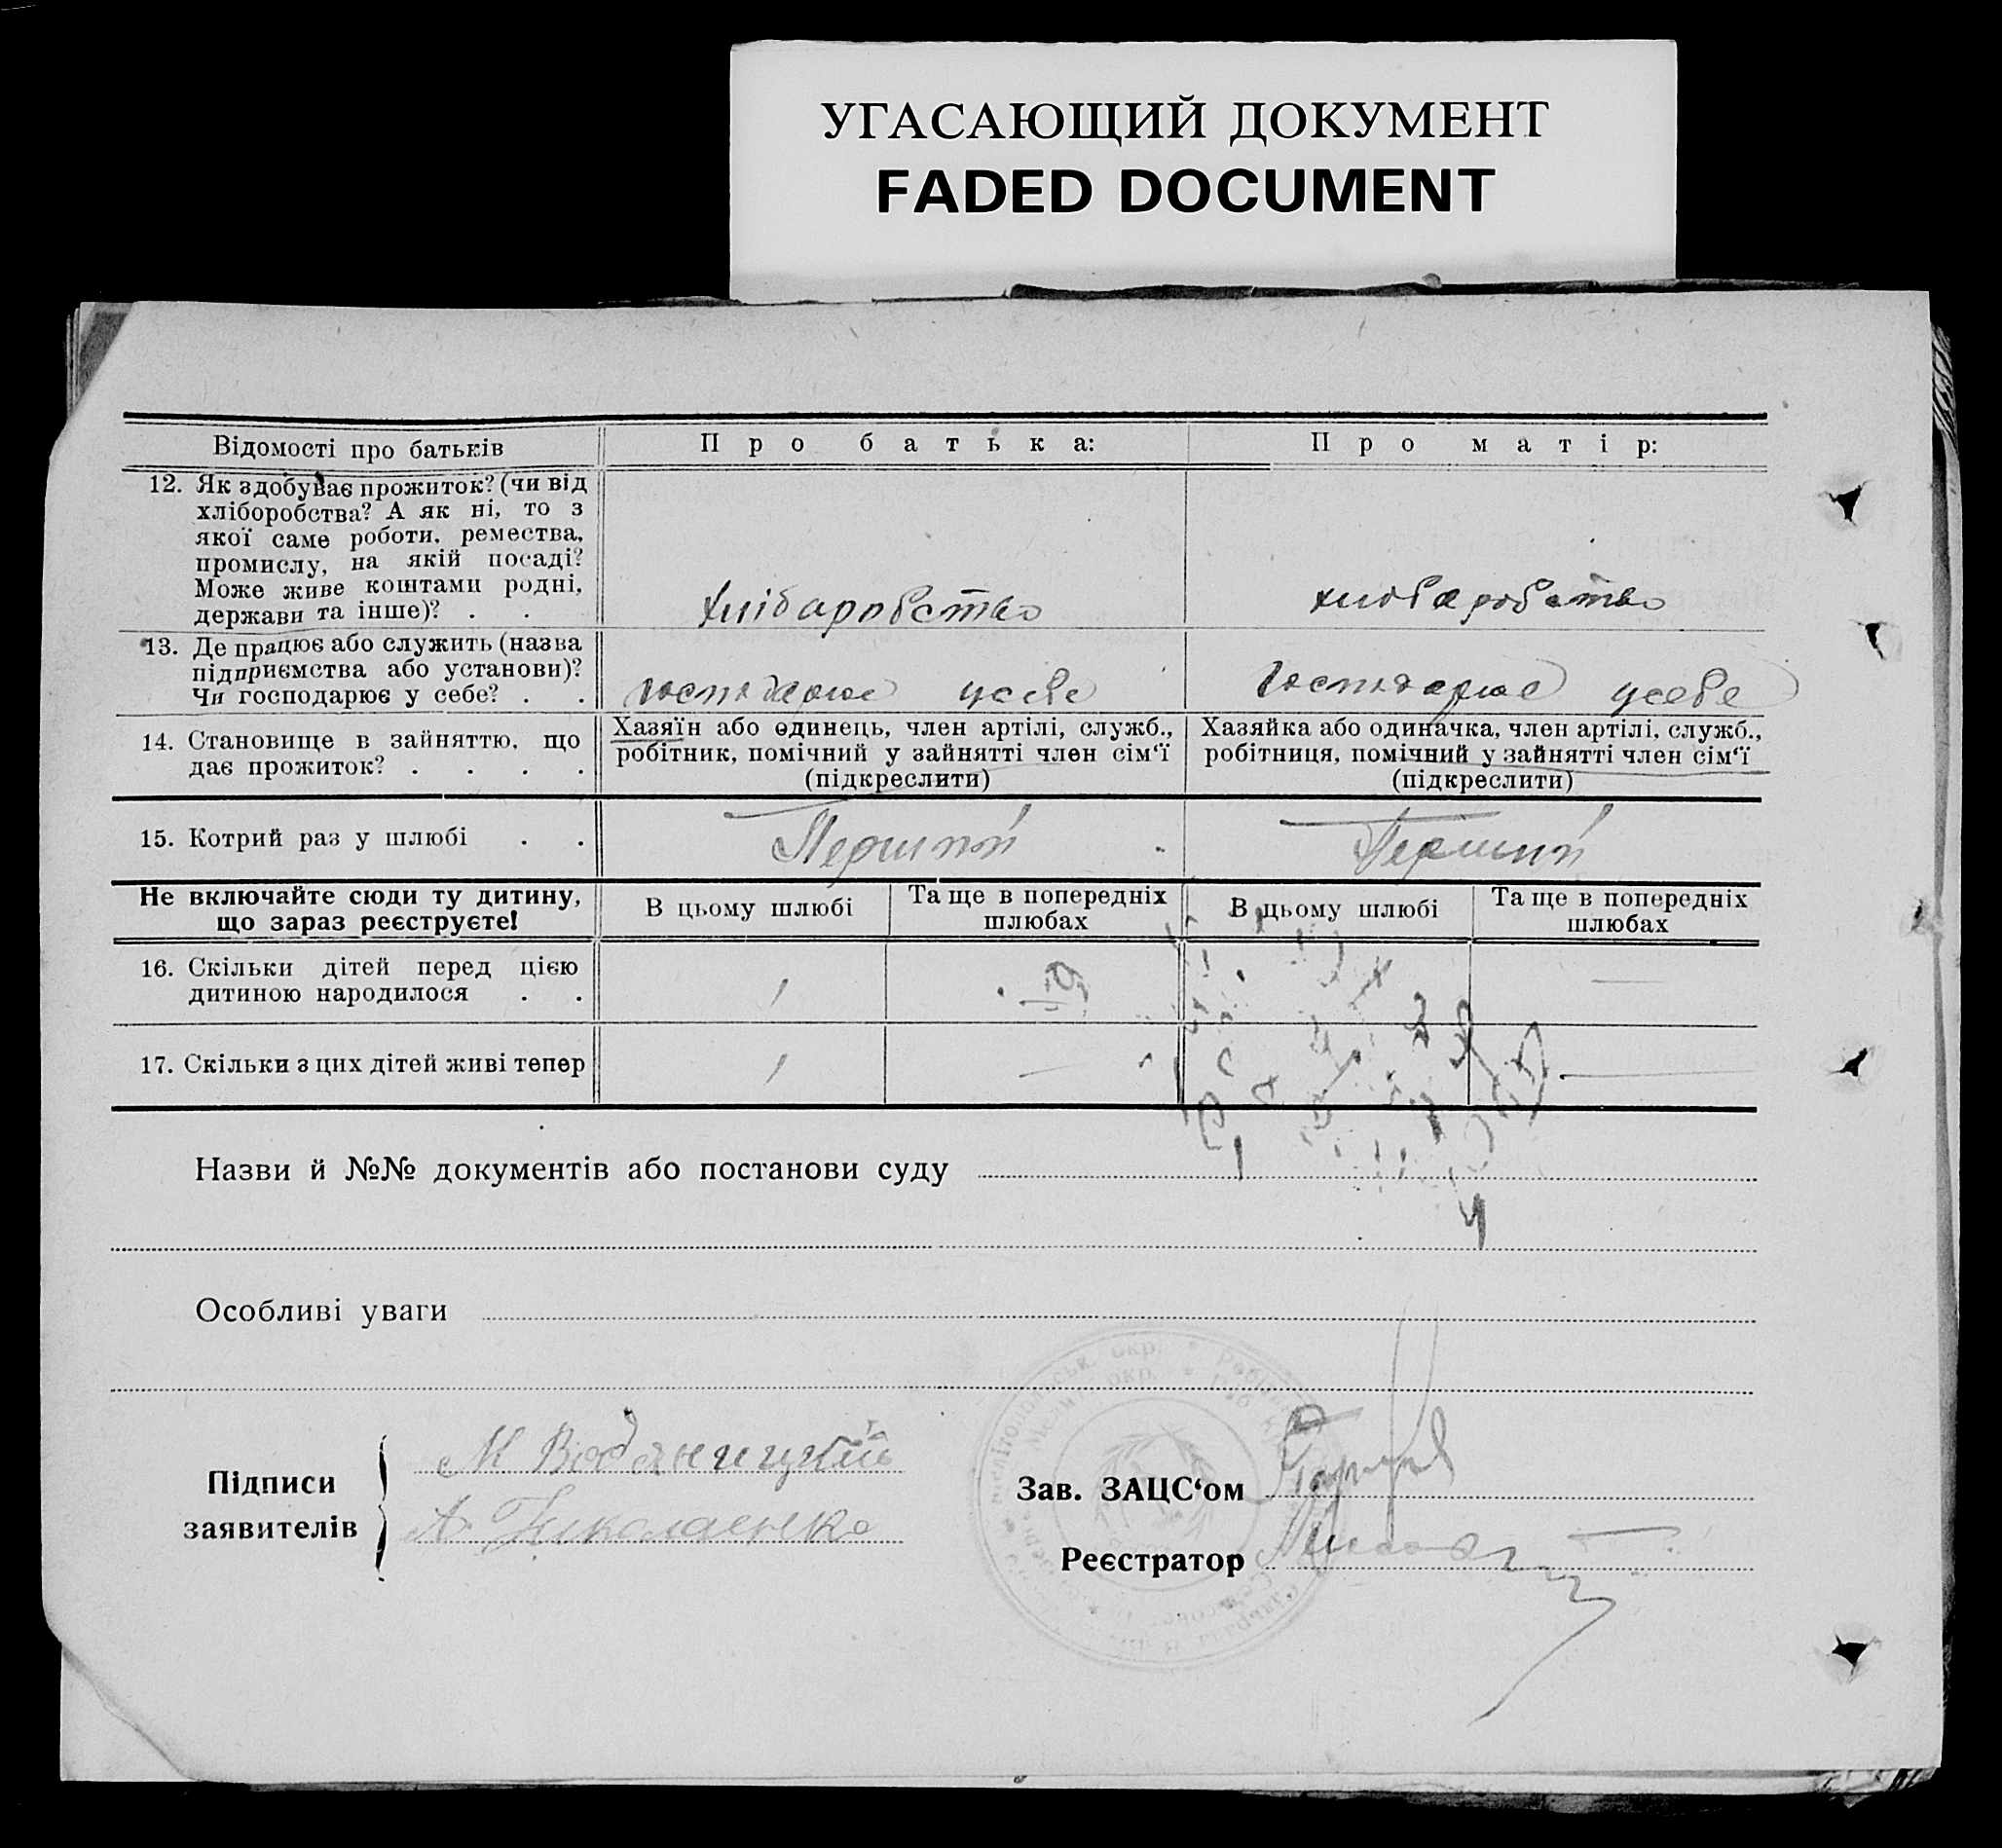 УГАСАЮЩИЙ ДОКУМЕНТ
FADED DOCUMENT
Відомості про батьків
Про батька:
Про матір:
12. Як здобуває прожиток? (чи від
хліборобства? А як ні, то з
якої саме роботи, ремества,
промислу, на якій посаді?
Може живе коштами родні,
держави та інше)? . .
хлібаробство
хлобаробство
13. Де працює або служить (назва
підприємства або установи)?
Чи господарює у себе? . .
господарює усебе
господарює усебе
14. Становище в зайняттю, що
дає прожиток? . . . .
Хазяїн або одинець, член артілі, служб.,
робітник, помічний у зайнятті член сім‘ї
(підкреслити)
Хазяйка або одиначка, член артілі, служб.,
робітниця, помічний у зайнятті член сім‘ї
(підкреслити)
15. Котрий раз у шлюбі . .
Перший
Перший
Не включайте сюди ту дитину,
що зараз реєструєте!
В цьому шлюбі
Та ще в попередніх
шлюбах
В цьому шлюбі
Та ще в попередніх
шлюбах
16. Скільки дітей перед цією
дитиною народилося . .
1
—
17. Скільки з цих дітей живі тепер
1
—
—
Назви й №№ документів або постанови суду
Особливі уваги
Підписи
заявителів
М Водяницкий
А. Николаенко
Зав. ЗАЦС‘ом
Реєстратор